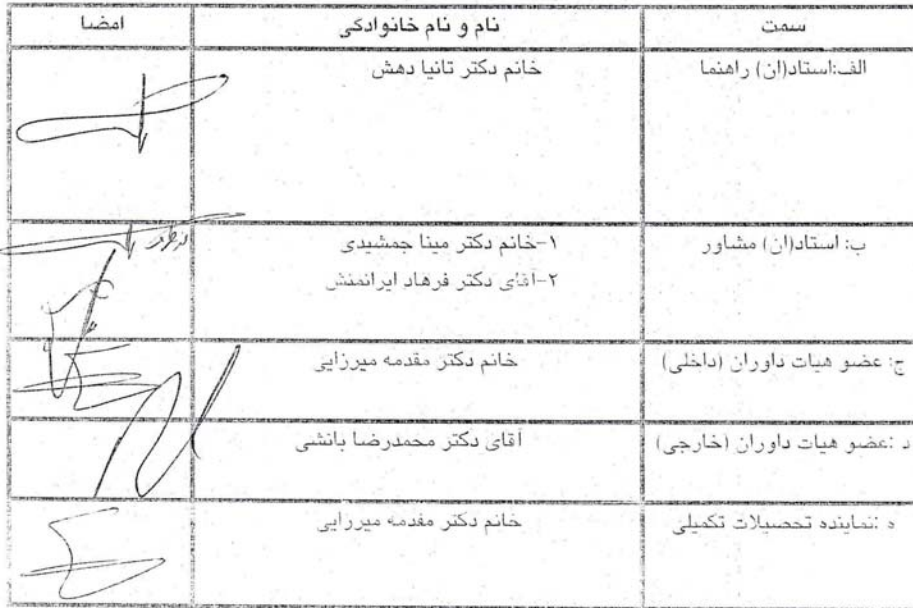 سمت	نام و نام خانوادگی	امضا
الف:استاد(ان) راهنما	خانم دکتر تانیا دهش
ب: استاد(ان) مشاور	۱-خانم دکتر مینا جمشیدی
۲-آقای دکتر فرهاد ایرانمنش
ج: عضو هیات داوران (داخلی)	خانم دکتر مقدمه میرزایی
د :عضو هیات داوران (خارجی)	آقای دکتر محمدرضا بانشی
ه :نماینده تحصیلات تکمیلی	خانم دکتر مقدمه میرزایی